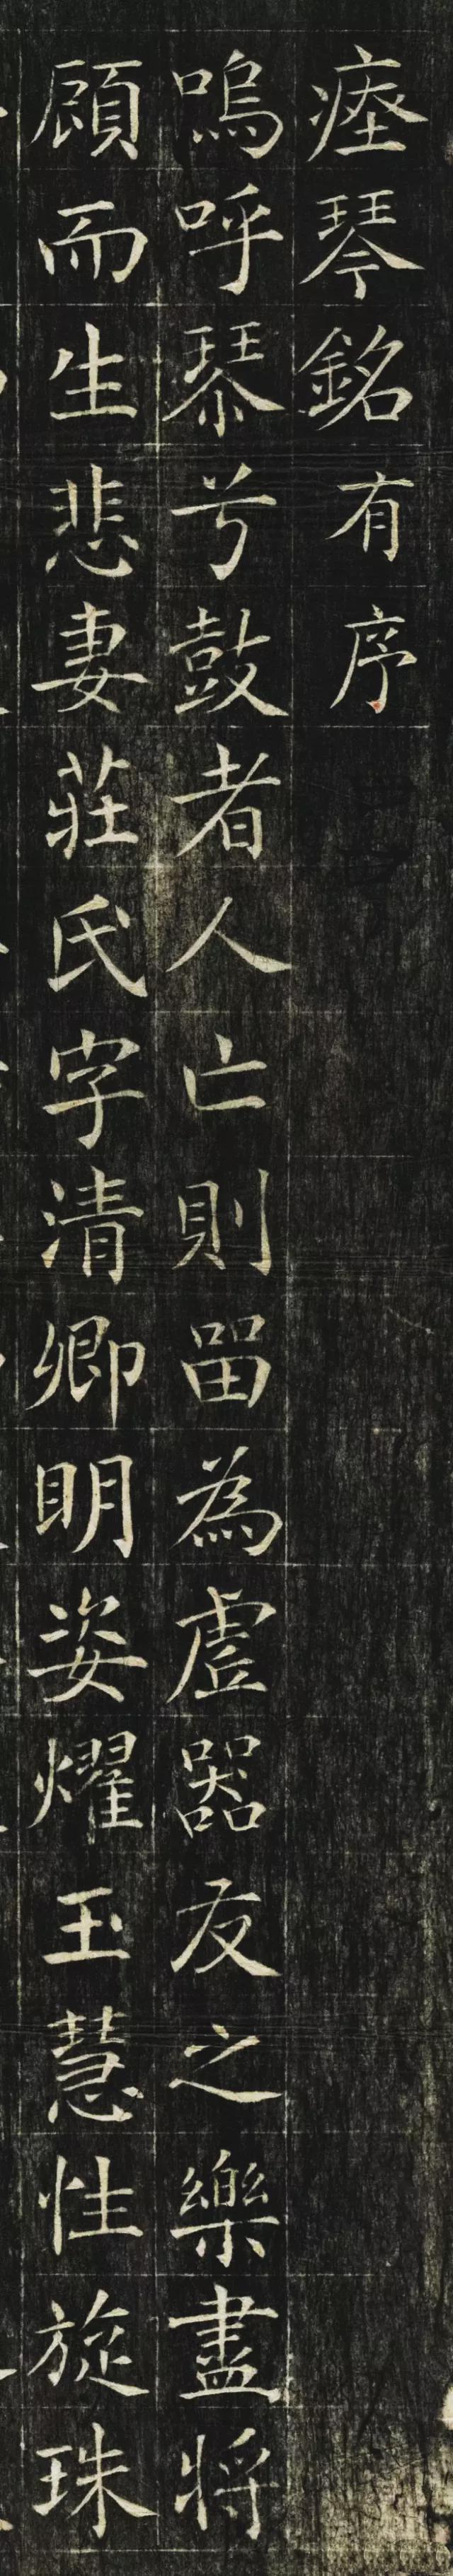 瘞琴銘有序
嗚呼琴兮鼓者人亡則畱為虛器友之樂盡將
顧而生悲妻莊氏字清卿明姿燿玉慧性旋珠